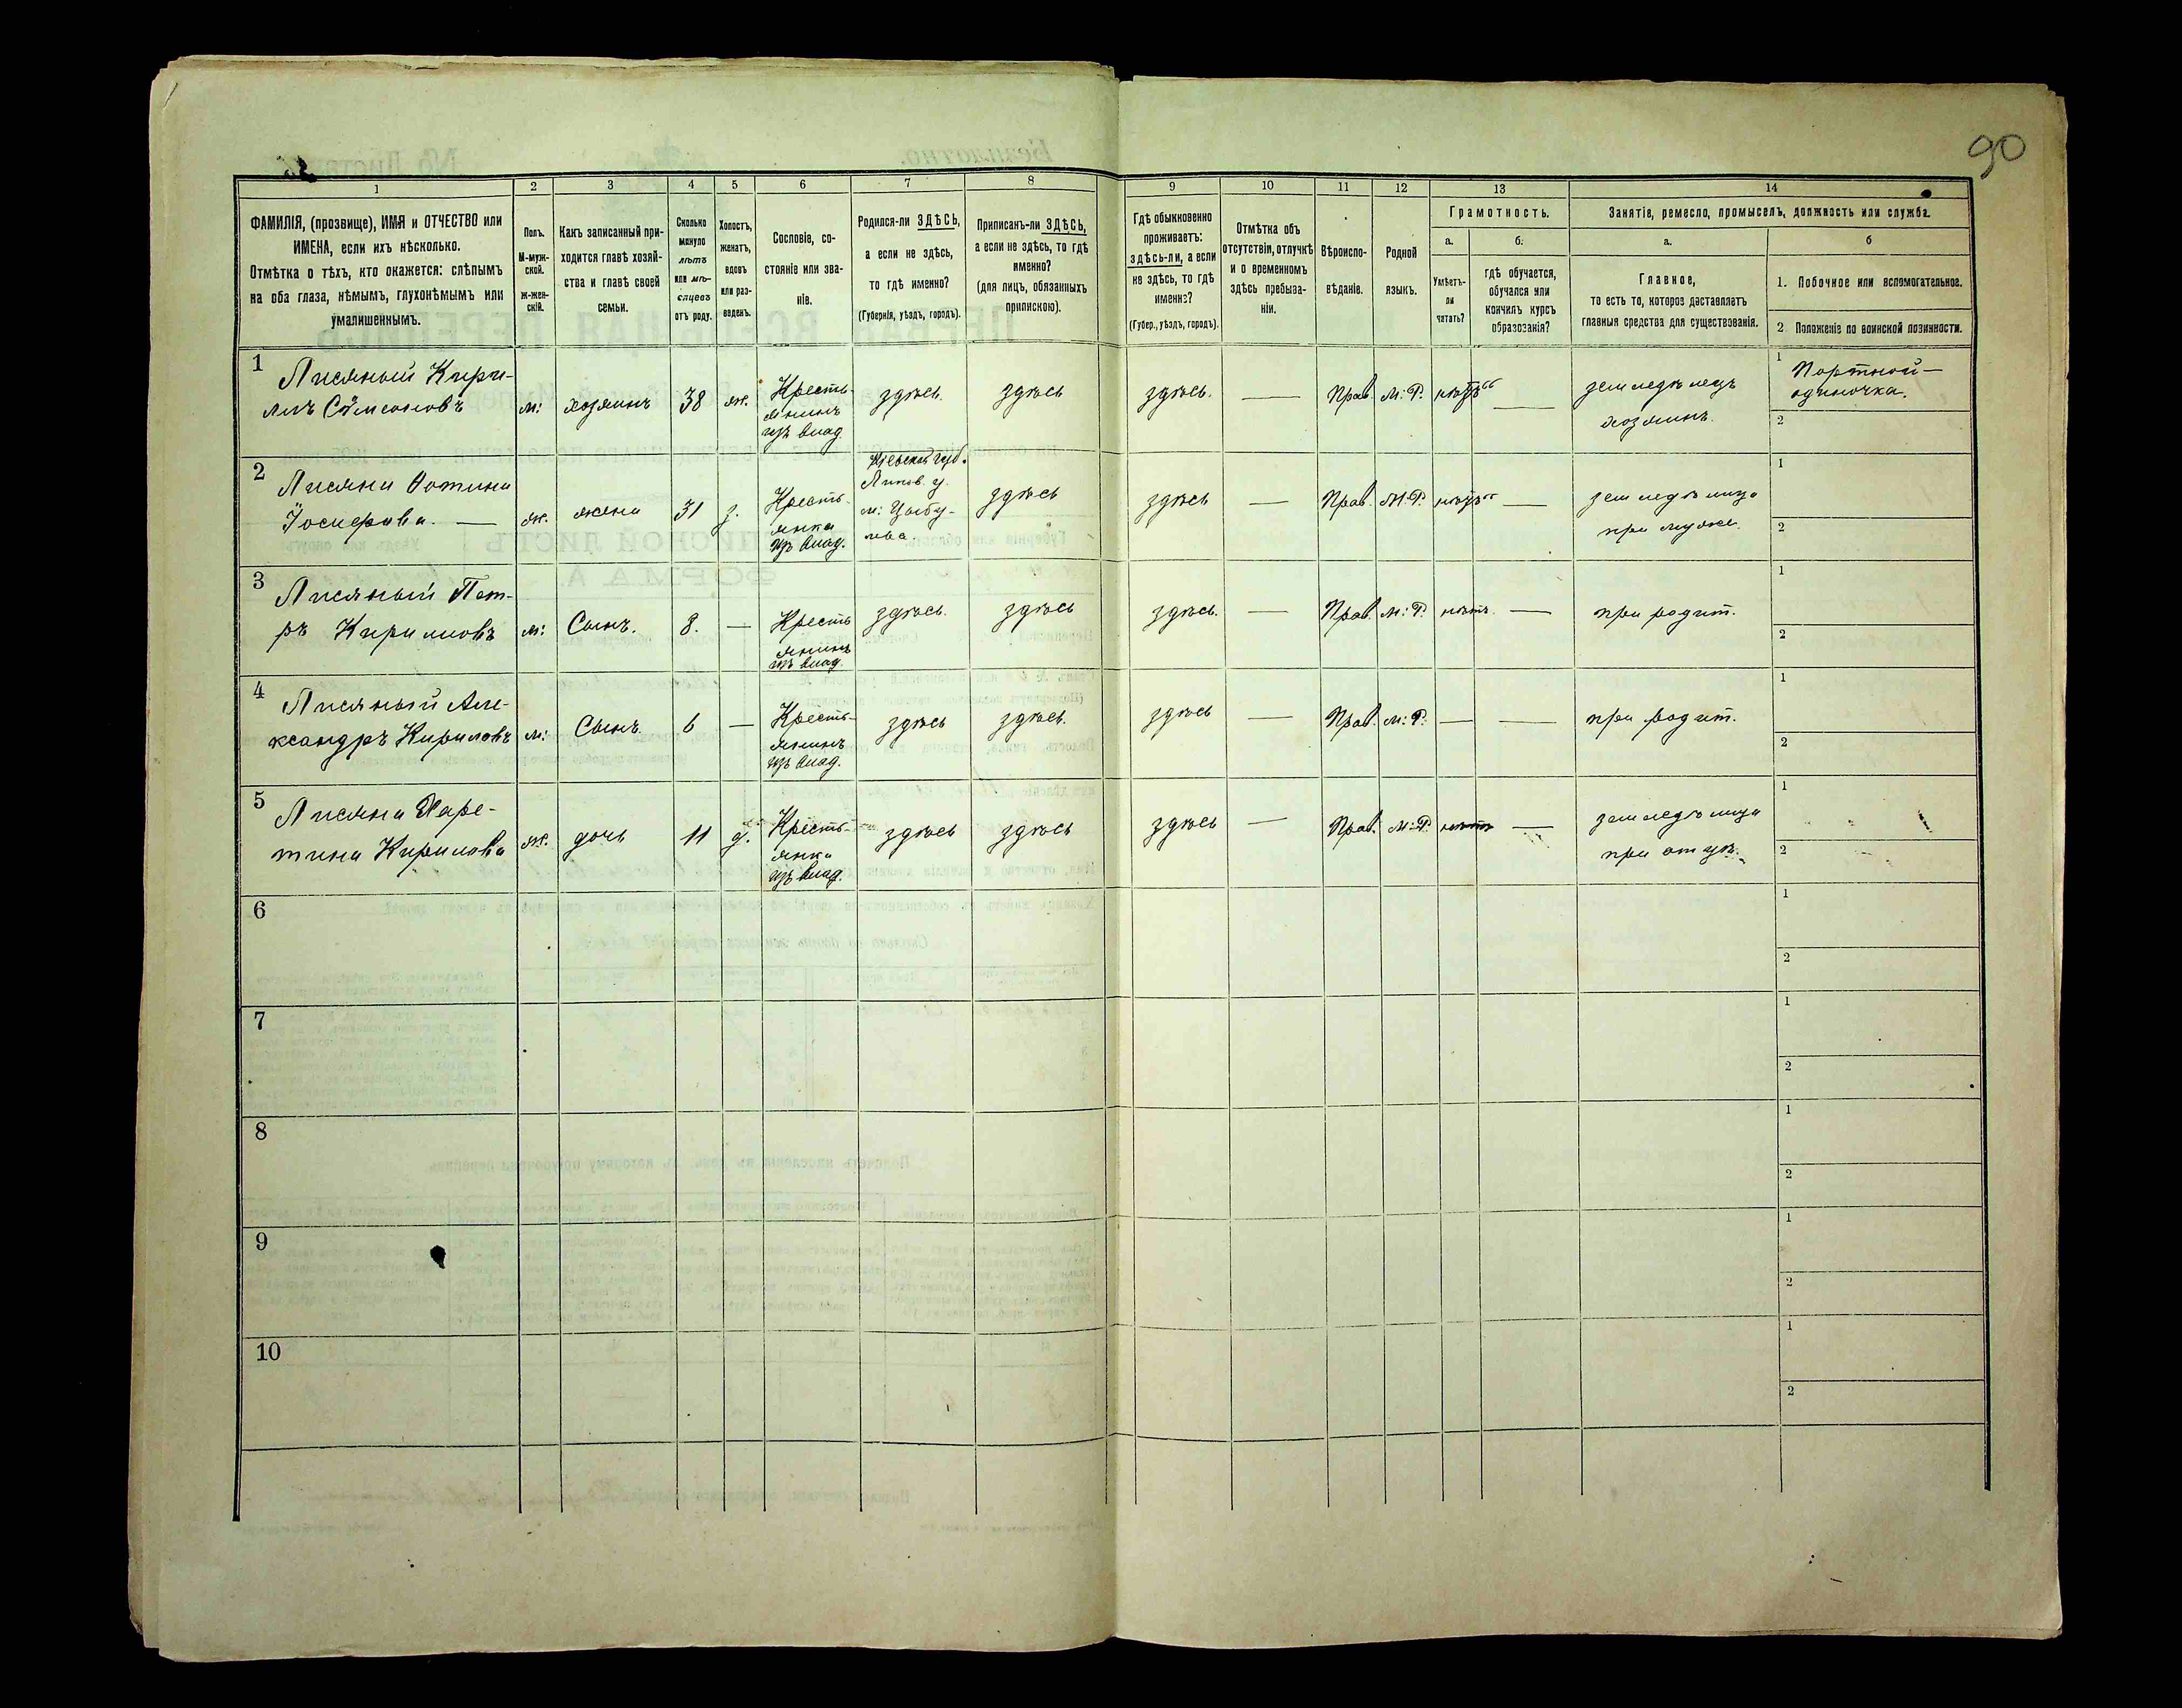 90
1 2 3 4 5 6 7 8 9 10 11 12 13 14
ФАМИЛІЯ, (прозвище), ИМЯ и ОТЧЕСТВО или
ИМЕНА, если ихъ нѣсколько.
Отмѣтка о тѣхъ, кто окажется: слѣпымъ
на оба глаза, нѣмымъ, глухонѣмымъ или
умалишеннымъ.
Полъ.
М-муж-
ской.
ж-жен-
скій.
Какъ записанный при-
ходится главѣ хозяй-
ства и главѣ своей
семьи.
Сколько
минуло
лѣтъ
или мѣ-
сяцевъ
отъ роду.
Холостъ,
женатъ,
вдовъ
или раз-
веденъ.
Сословіе, со-
стояніе или зва-
ніе.
Родился-ли ЗДѢСЬ,
а если не здѣсь,
то гдѣ именно?
(Губернія, уѣздъ, городъ).
Приписанъ-ли ЗДѢСЬ,
а если не здѣсь, то гдѣ
именно?
(для лицъ, обязанныхъ
припискою).
Гдѣ обыкновенно
проживаетъ:
здѣсь-ли, а если
не здѣсь, то гдѣ
именно?
(Губер., уѣздъ, городъ).
Отмѣтка объ
отсутствіи, отлучкѣ
и о временномъ
здѣсь пребыва-
ніи.
Вѣроиспо-
вѣданіе.
Родной
языкъ.
Грамотность.
а.
Умѣетъ-
ли
читать?
б.
гдѣ обучается,
обучался или
кончилъ курсъ
образованія?
Занятіе, ремесло, промыселъ, должность или служба.
а.
Главное,
то есть то, которое доставляетъ
главныя средства для существованія.
б
1. Побочное или вспомогательное.
2 Положеніе по воинской повинности.
1
Лисяный Кири-
лъ Симоновъ
м:
хозяинъ
38
ж.
Кресть-
янинъ
изъ влад.
здѣсь.
здѣсь
здѣсь.
—
Прав.
М: Р.
нѣтъ
—
земледѣлецъ
хозяинъ.
1
Портной—
одиночка.
2
2
Лисяна Фотина
Іосифова. —
ж.
жена
31
з.
Кресть-
янка
изъ влад.
Кіевской губ.
Липов. у.
м: Цыбу-
лева
здѣсь
здѣсь
—
Прав.
М: Р.
нѣтъ
—
земледѣлица
при муже.
1
2
3
Лисяный Пет-
ръ Кириловъ
м:
Сынъ.
8.
—
Кресть
янинъ
изъ влад.
здѣсь.
здѣсь
здѣсь.
—
Прав.
м: Р.
нѣтъ.
—
при родит.
1
2
4
Лисяный Але-
ксандръ Кириловъ
м:
Сынъ
6
—
Кресть-
янинъ
изъ влад.
здѣсь
здѣсь.
здѣсь
—
Прав.
м: Р.
—
—
при родит.
1
2
5
Лисяна Харе-
тина Кирилова
ж.
дочь
11
д.
Кресть-
янка
изъ влад.
здѣсь
здѣсь
здѣсь
—
Прав.
м: Р.
нѣтъ
—
земледѣлица
при отцѣ.
1
2
6
1
2
7
1
2
8
1
2
9
1
2
10
1
2